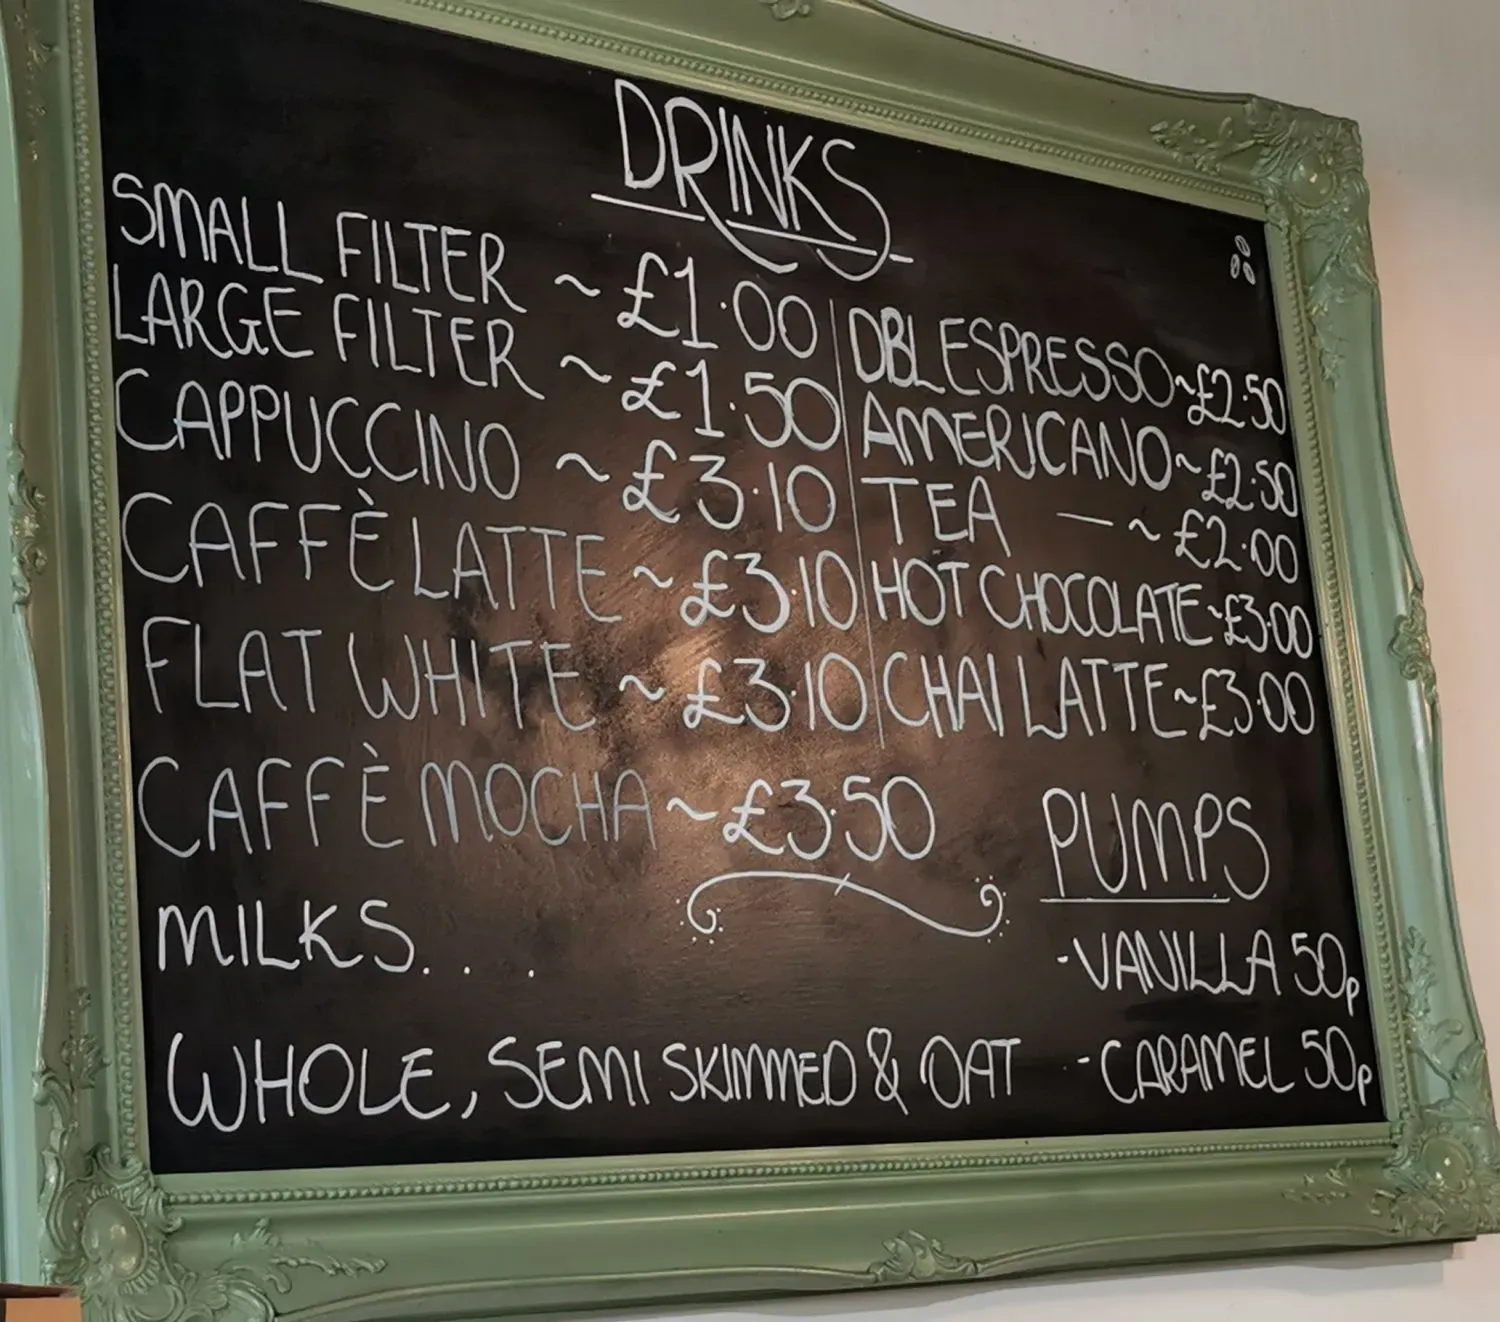 DRINKS
SMALL FILTER ~ £1.00
LARGE FILTER ~ £1.50
CAPPUCCINO ~ £3.10
CAFFÈ LATTE ~ £3.10
FLAT WHITE ~ £3.10
CAFFÈ MOCHA ~ £3.50
DBL ESPRESSO ~ £2.50
AMERICANO ~ £2.50
TEA — ~ £2.00
HOT CHOCOLATE ~ £3.00
CHAI LATTE ~ £3.00
MILKS. . .
WHOLE, SEMI SKIMMED & OAT
PUMPS
- VANILLA 50p
- CARAMEL 50p